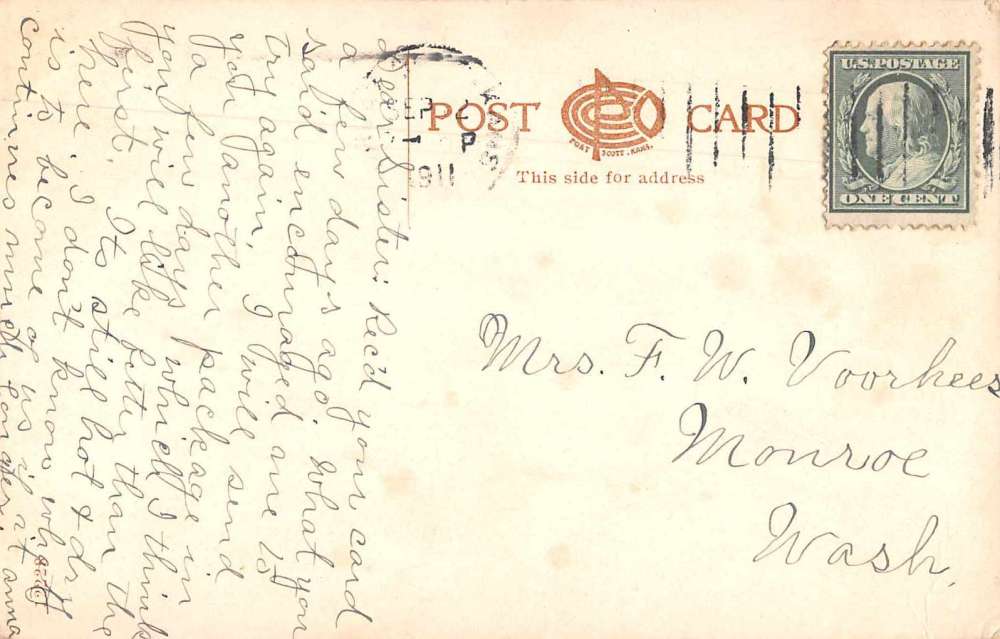 Dear Sister: Rec'd your card
a few days ago. What you
said encouraged me to
try again, I will send
you another package in
a few days which I think
you will like better than the
first. Its still hot & dry
here. I don't know what
is to become of us if it
continues much longer. Anna
SEP 2
1 P
1911
POST CARD
FORT SCOTT, KANS.
This side for address
U.S. POSTAGE
ONE CENT
Mrs. F. W. Voorhees
Monroe
Wash.